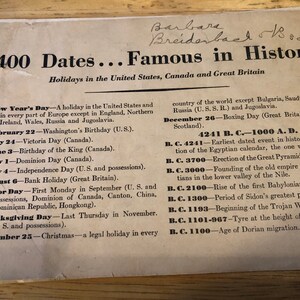 Barbara
Breidenbach
400 Dates... Famous in Histor
Holidays in the United States, Canada and Great Britain
ew Year's Day—A holiday in the United States and
in every part of Europe except in England, Northern
Ireland, Wales, Russia and Jugoslavia.
ebruary 22—Washington's Birthday (U. S.).
y 24—Victoria Day (Canada).
ne 3—Birthday of the King (Canada).
y 1—Dominion Day (Canada).
4—Independence Day (U. S. and possessions).
st 6—Bank Holiday (Great Britain).
or Day—First Monday in September (U. S. and
ossessions, Dominion of Canada, Canton, China,
ominican Republic, Hongkong).
nksgiving Day—Last Thursday in November.
S. and possessions).
mber 25—Christmas—a legal holiday in every
country of the world except Bulgaria, Saudi
Russia (U. S. S. R.) and Jugoslavia.
December 26—Boxing Day (Great Britain
Scotland).
4241 B. C.—1000 A. D.
B. C. 4241—Earliest dated event in histor
tion of the Egyptian calendar, the one w
B. C. 3700—Erection of the Great Pyrami
B. C. 3000—Founding of the old empire
tians in the lower valley of the Nile.
B. C. 2100—Rise of the first Babylonia
B. C. 1300—Period of Sidon's greatest p
B. C. 1193—Beginning of the Trojan W
B. C. 1101-967—Tyre at the height of
B. C. 1100—Age of Dorian migration.